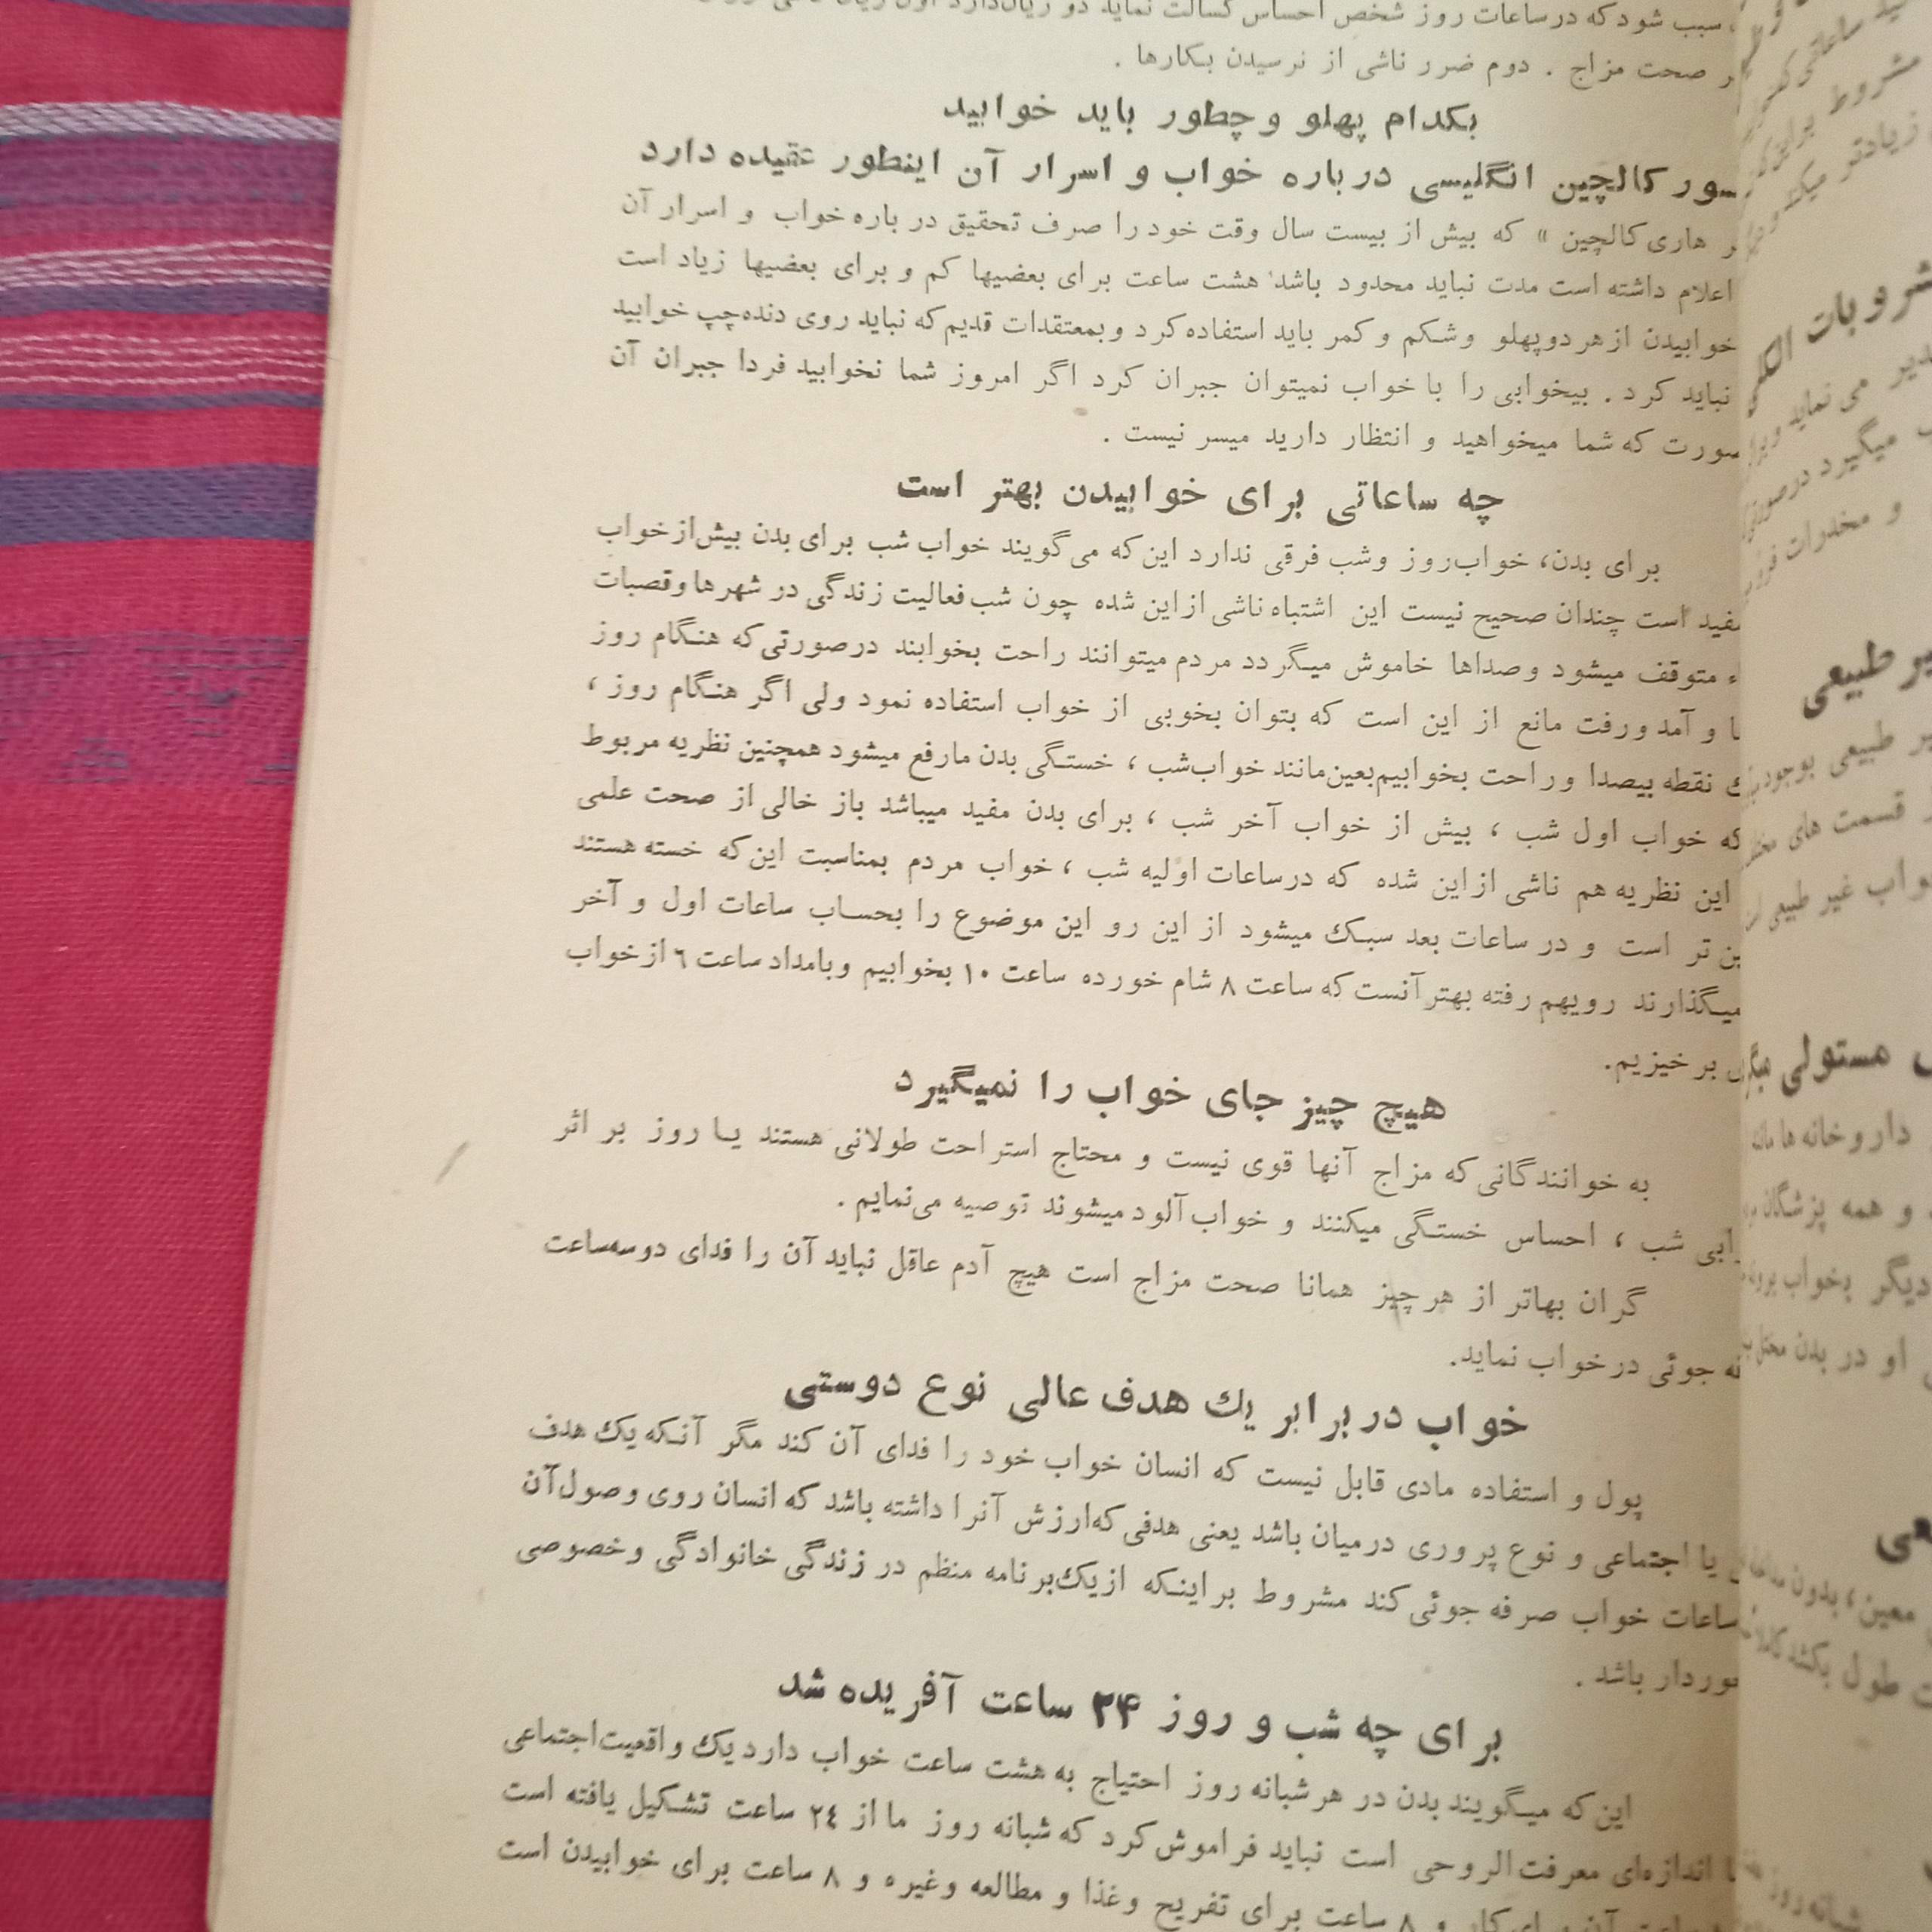 سبب شود که در ساعات روز شخص احساس کسالت نماید دو زیان دارد اول زیان
صحت مزاج . دوم ضرر ناشی از نرسیدن بکارها .
بکدام پهلو و چطور باید خوابید
کالچین انگلیسی درباره خواب و اسرار آن اینطور عقیده دارد
هاری کالچین » که بیش از بیست سال وقت خود را صرف تحقیق در باره خواب و اسرار آن
اعلام داشته است مدت نباید محدود باشد هشت ساعت برای بعضیها کم و برای بعضیها زیاد است
خوابیدن از هر دو پهلو و شکم و کمر باید استفاده کرد و بمعتقدات قدیم که نباید روی دنده چپ خوابید
نباید کرد . بیخوابی را با خواب نمیتوان جبران کرد اگر امروز شما نخوابید فردا جبران آن
صورت که شما میخواهید و انتظار دارید میسر نیست .
چه ساعاتی برای خوابیدن بهتر است
برای بدن، خواب روز و شب فرقی ندارد این که می گویند خواب شب برای بدن بیش از خواب
مفید است چندان صحیح نیست این اشتباه ناشی از این شده چون شب فعالیت زندگی در شهرها و قصبات
متوقف میشود و صداها خاموش میگردد مردم میتوانند راحت بخوابند در صورتی که هنگام روز
و آمد و رفت مانع از این است که بتوان بخوبی از خواب استفاده نمود ولی اگر هنگام روز ،
نقطه بیصدا و راحت بخوابیم بعین مانند خواب شب ، خستگی بدن ما رفع میشود همچنین نظریه مربوط
که خواب اول شب ، بیش از خواب آخر شب ، برای بدن مفید میباشد باز خالی از صحت علمی
این نظریه هم ناشی از این شده که در ساعات اولیه شب ، خواب مردم بمناسبت این که خسته هستند
تر است و در ساعات بعد سبک میشود از این رو این موضوع را بحساب ساعات اول و آخر
میگذارند رویهم رفته بهتر آنست که ساعت ۸ شام خورده ساعت ۱۰ بخوابیم و بامداد ساعت ٦ از خواب
بر خیزیم.
هیچ چیز جای خواب را نمیگیرد
به خوانندگانی که مزاج آنها قوی نیست و محتاج استراحت طولانی هستند یا روز بر اثر
شب ، احساس خستگی میکنند و خواب آلود میشوند توصیه می‌نمایم .
گران بهاتر از هر چیز همانا صحت مزاج است هیچ آدم عاقل نباید آن را فدای دوسه ساعت
جوئی در خواب نماید.
خواب در برابر یك هدف عالی نوع دوستی
پول و استفاده مادی قابل نیست که انسان خواب خود را فدای آن کند مگر آنکه یک هدف
یا اجتماعی و نوع پروری در میان باشد یعنی هدفی که ارزش آنرا داشته باشد که انسان روی وصول آن
ساعات خواب صرفه جوئی کند مشروط بر اینکه از یک برنامه منظم در زندگی خانوادگی و خصوصی
باشد .
برای چه شب و روز ۲۴ ساعت آفریده شد
این که میگویند بدن در هر شبانه روز احتیاج به هشت ساعت خواب دارد یک واقعیت اجتماعی
اندازه‌ای معرفت الروحی است نباید فراموش کرد که شبانه روز ما از ۲٤ ساعت تشکیل یافته است
ساعت آن برای کار و ۸ ساعت برای تفریح و غذا و مطالعه و غیره و ۸ ساعت برای خوابیدن است
مشروط
زیادتر میکند
مشروبات
می نماید
میگیرد
و مخدرات
طبیعی
طبیعی
قسمت های
غیر طبیعی
مستولی
داروخانه ها
و همه پزشگان
دیگر بخواب
او در بدن
معین ، بدون
طول بکشد